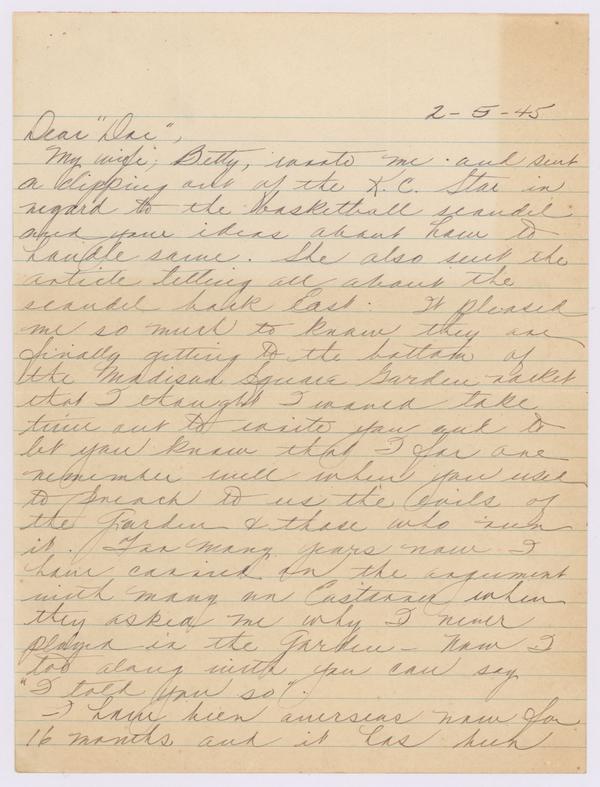 2-5-45
Dear "Doc",
My wife, Betty, wrote me and sent
a clipping out of the K.C. Star in
regard to the basketball scandel
and your ideas about how to
handle same. She also sent the
article telling all about the
scandel back East. It pleased
me so much to know they are
finally getting to the bottom of
the Madison Square Garden racket
that I thought I would take
time out to write you and to
let you know that I for one
remember well when you used
to preach to us the evils of
the Garden & those who run
it. For many years now I
have carried on the argument
with many an Easterner when
they asked me why I never
played in the Garden - Now I
too along with you can say
"I told you so".
- I have been overseas now for
16 months and it has been